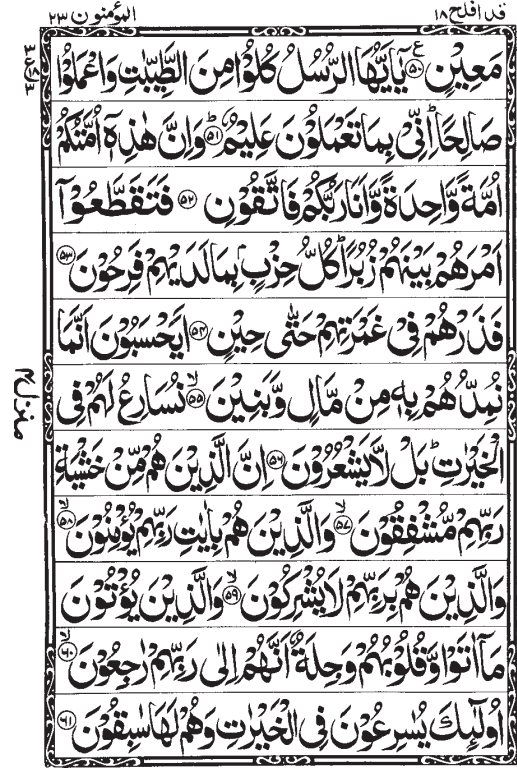 قد افلح ١٨
المؤمنون ٢٣
مَعِيْنٍ ﴿۵۰﴾ ع يٰۤاَيُّهَا الرُّسُلُ كُلُوْا مِنَ الطَّيِّبٰتِ وَاعْمَلُوْا
صَالِحًا ؕ اِنِّىْ بِمَا تَعْمَلُوْنَ عَلِيْمٌ ؕ ﴿۵۱﴾ وَاِنَّ هٰذِهٖۤ اُمَّتُكُمْ
اُمَّةً وَّاحِدَةً وَّاَنَا رَبُّكُمْ فَاتَّقُوْنِ ﴿۵۲﴾ فَتَقَطَّعُوْۤا
اَمْرَهُمْ بَيْنَهُمْ زُبُرًا ؕ كُلُّ حِزْبٍۭ بِمَا لَدَيْهِمْ فَرِحُوْنَ ﴿۵۳﴾
فَذَرْهُمْ فِىْ غَمْرَتِهِمْ حَتّٰى حِيْنٍ ﴿۵۴﴾ اَيَحْسَبُوْنَ اَنَّمَا
نُمِدُّهُمْ بِهٖ مِنْ مَّالٍ وَّبَنِيْنَ ۙ ﴿۵۵﴾ نُسَارِعُ لَهُمْ فِى
الْخَيْرٰتِ ؕ بَلْ لَّا يَشْعُرُوْنَ ﴿۵۶﴾ اِنَّ الَّذِيْنَ هُمْ مِّنْ خَشْيَةِ
رَبِّهِمْ مُّشْفِقُوْنَ ۙ ﴿۵۷﴾ وَالَّذِيْنَ هُمْ بِاٰيٰتِ رَبِّهِمْ يُؤْمِنُوْنَ ۙ ﴿۵۸﴾
وَالَّذِيْنَ هُمْ بِرَبِّهِمْ لَا يُشْرِكُوْنَ ۙ ﴿۵۹﴾ وَالَّذِيْنَ يُؤْتُوْنَ
مَاۤ اٰتَوْا وَّقُلُوْبُهُمْ وَجِلَةٌ اَنَّهُمْ اِلٰى رَبِّهِمْ رٰجِعُوْنَ ۙ ﴿۶۰﴾
اُولٰٓئِكَ يُسٰرِعُوْنَ فِى الْخَيْرٰتِ وَهُمْ لَهَا سٰبِقُوْنَ ﴿۶۱﴾
منزل ۴